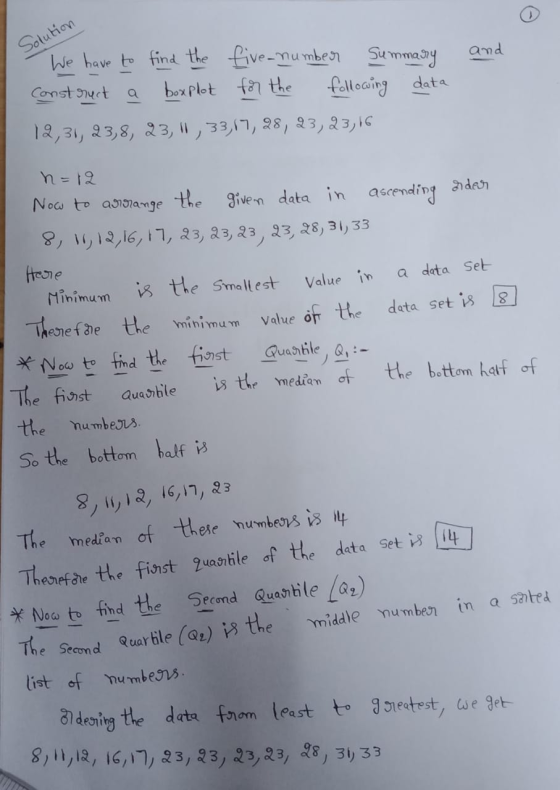 ①
Solution
We have to find the five-number Summary and
Construct a boxplot for the following data
12, 31, 23, 8, 23, 11, 33, 17, 28, 23, 23, 16
n = 12
Now to arrange the given data in ascending order
8, 11, 12, 16, 17, 23, 23, 23, 23, 28, 31, 33
Here
Minimum is the smallest value in a data set
Therefore the minimum value of the data set is 8
* Now to find the first Quartile, Q₁:-
The first quartile is the median of the bottom half of
the numbers.
So the bottom half is
8, 11, 12, 16, 17, 23
The median of these numbers is 14
Therefore the first quartile of the data set is 14
* Now to find the Second Quartile (Q₂)
The second Quartile (Q₂) is the middle number in a sorted
list of numbers.
Ordering the data from least to greatest, we get
8, 11, 12, 16, 17, 23, 23, 23, 23, 28, 31, 33